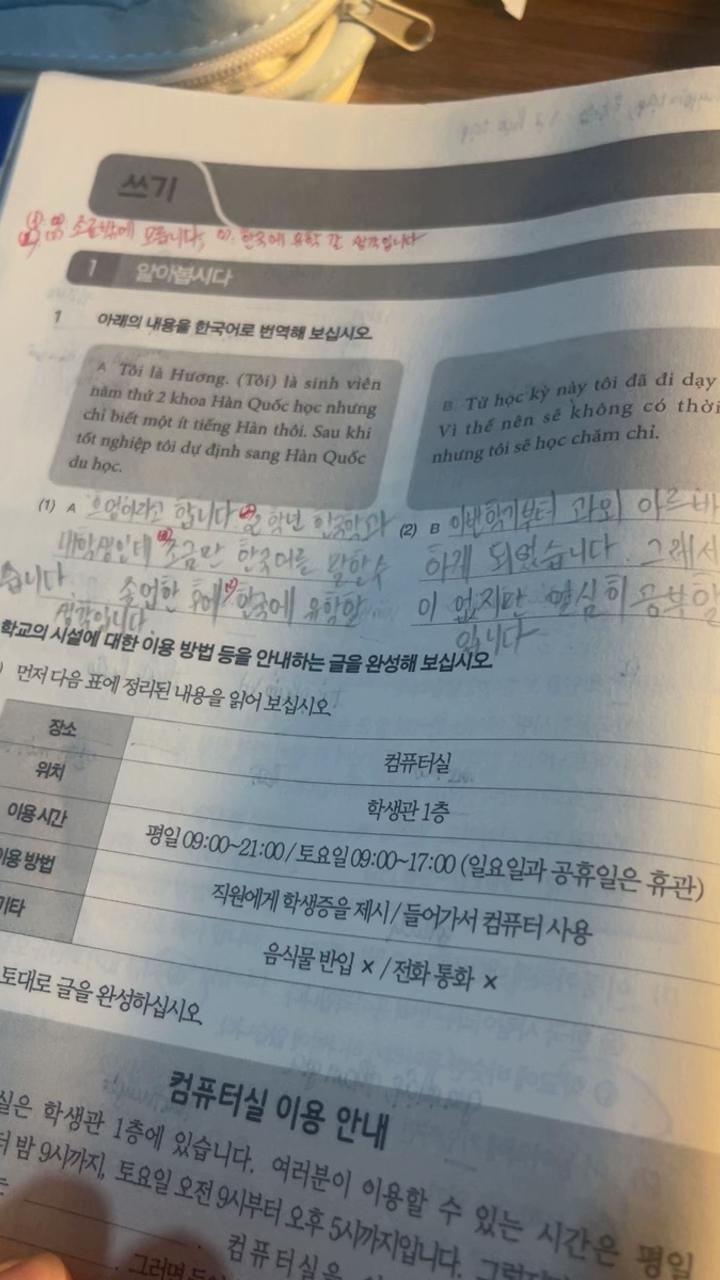 쓰기
조금밖에 모릅니다, 한국에 유학 갈 생각입니다
1 알아봅시다
1 아래의 내용을 한국어로 번역해 보십시오.
A Tôi là Hương. (Tôi) là sinh viên
năm thứ 2 khoa Hàn Quốc học nhưng
chỉ biết một ít tiếng Hàn thôi. Sau khi
tốt nghiệp tôi dự định sang Hàn Quốc
du học.
B Từ học kỳ này tôi đã đi dạy
Vì thế nên sẽ không có thời
nhưng tôi sẽ học chăm chỉ.
(1) A 합니다 2학년 한국학과
대학생인데 조금만 한국어를 말할수
습니다 졸업한 후에 한국에 유학할
생각입니다
(2) B 이번학기부터 과외 아르바
하게 되었습니다. 그래서
이 없지만 열심히 공부할
입니다
학교의 시설에 대한 이용 방법 등을 안내하는 글을 완성해 보십시오.
) 먼저 다음 표에 정리된 내용을 읽어 보십시오.
장소 컴퓨터실
위치 학생관 1층
이용 시간 평일 09:00~21:00 / 토요일 09:00~17:00 (일요일과 공휴일은 휴관)
이용 방법 직원에게 학생증을 제시 / 들어가서 컴퓨터 사용
기타 음식물 반입 × / 전화 통화 ×
토대로 글을 완성하십시오.
컴퓨터실 이용 안내
실은 학생관 1층에 있습니다. 여러분이 이용할 수 있는 시간은 평일
터 밤 9시까지, 토요일 오전 9시부터 오후 5시까지입니다.
컴퓨터실을